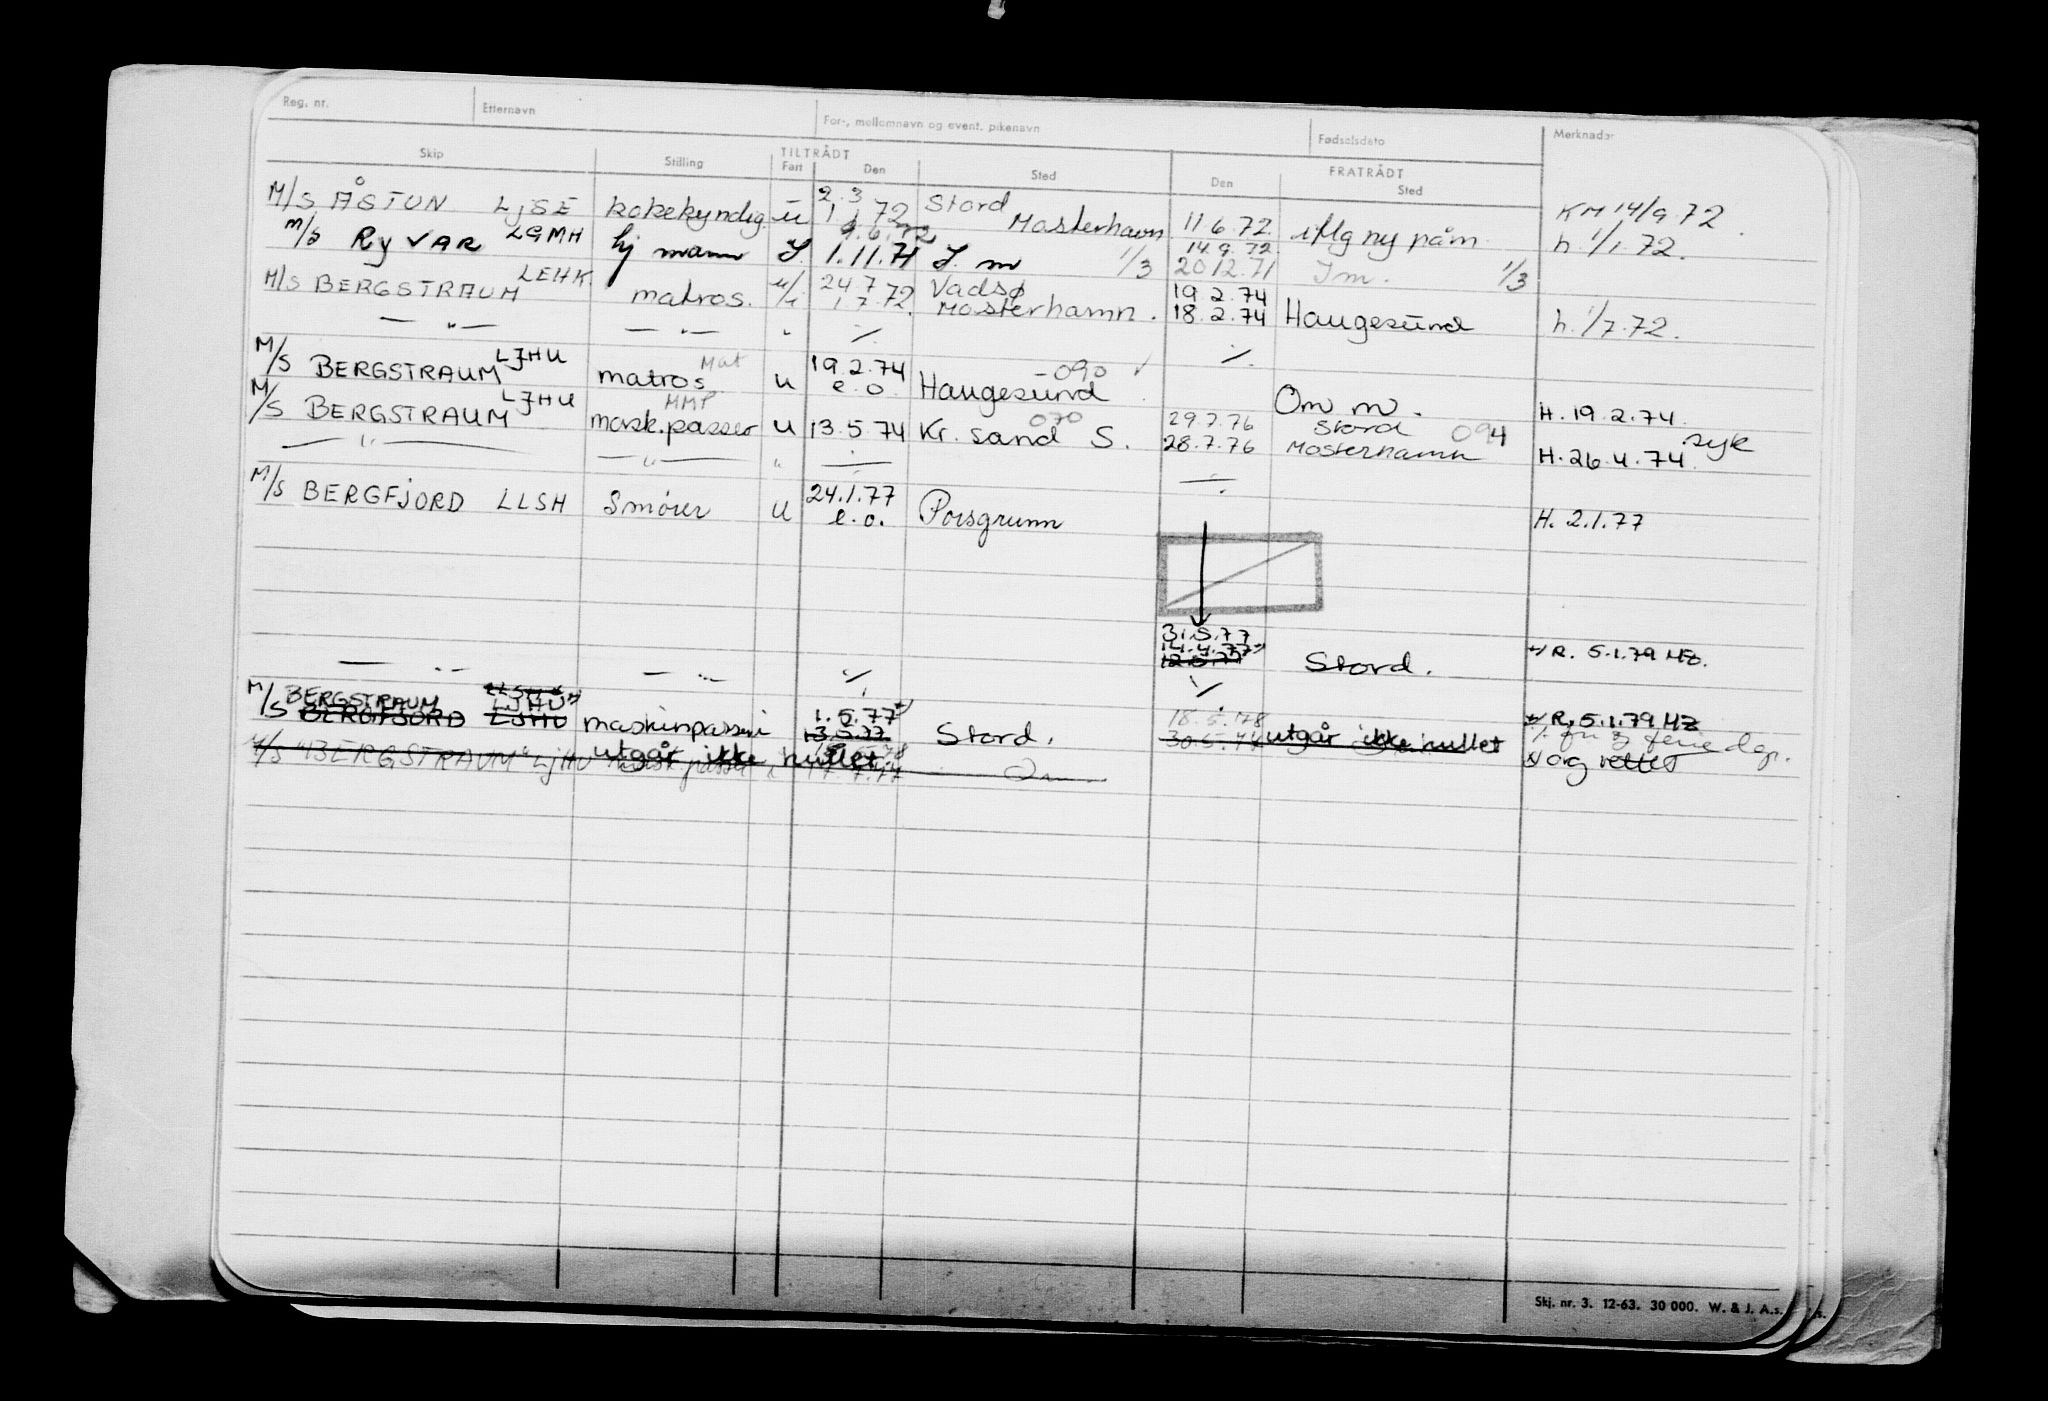 Reg. nr. Etternavn For-, mellomnavn og event. pikenavn Fødselsdato Merknader
Skip Stilling TILTRÅDT FRATRÅDT
Fart Den Sted Den Sted
2.3 Stord
M/S ÅSTUN LJSE kokekyndig u 1.1.72 Mosterhavn 11.6.72 iflg ny påm. KM 14/9.72
M/S RyVAR LGMH hj mann J. 1.11.71 J. m 1/3 20.12.71 Jm. 1/3 h. 1/1.72.
14.9.72
M/S BERGSTRAUM LEHK matros. 24.7 Vadsø 19.2.74
1.7.72. Mosterhamn. 18.2.74 Haugesund h. 1/7.72.
— " — — " — " ./. ./.
M/S BERGSTRAUM LJHU matros Mat u 19.2.74 e.o. Haugesund 090 Om m. H. 19.2.74.
M/S BERGSTRAUM LJHU mask.passer MMP u 13.5.74 Kr. sand S. 070 29.7.76 Stord 094
28.7.76 Mosterhamn H. 26.4.74. syk
— " — — " — "
M/S BERGFJORD LLSH Smører u 24.1.77 e.o. Porsgrunn H. 2.1.77
31.5.77
14.4.77
12.5.77 Stord. R. 5.1.79 HZ.
— " — — " — ./. ./.
M/S BERGSTRAUM LLSH LJHU
BERGFJORD LJHU maskinpasser 1.5.77 Stord. 18.5.78 R. 5.1.79 HZ
13.5.77 utgår ikke hullet
M/S "BERGSTRAUM" LJHU utgår ikke hullet. og rettet
Skj. nr. 3. 12-63. 30 000. W. & J. A.s.